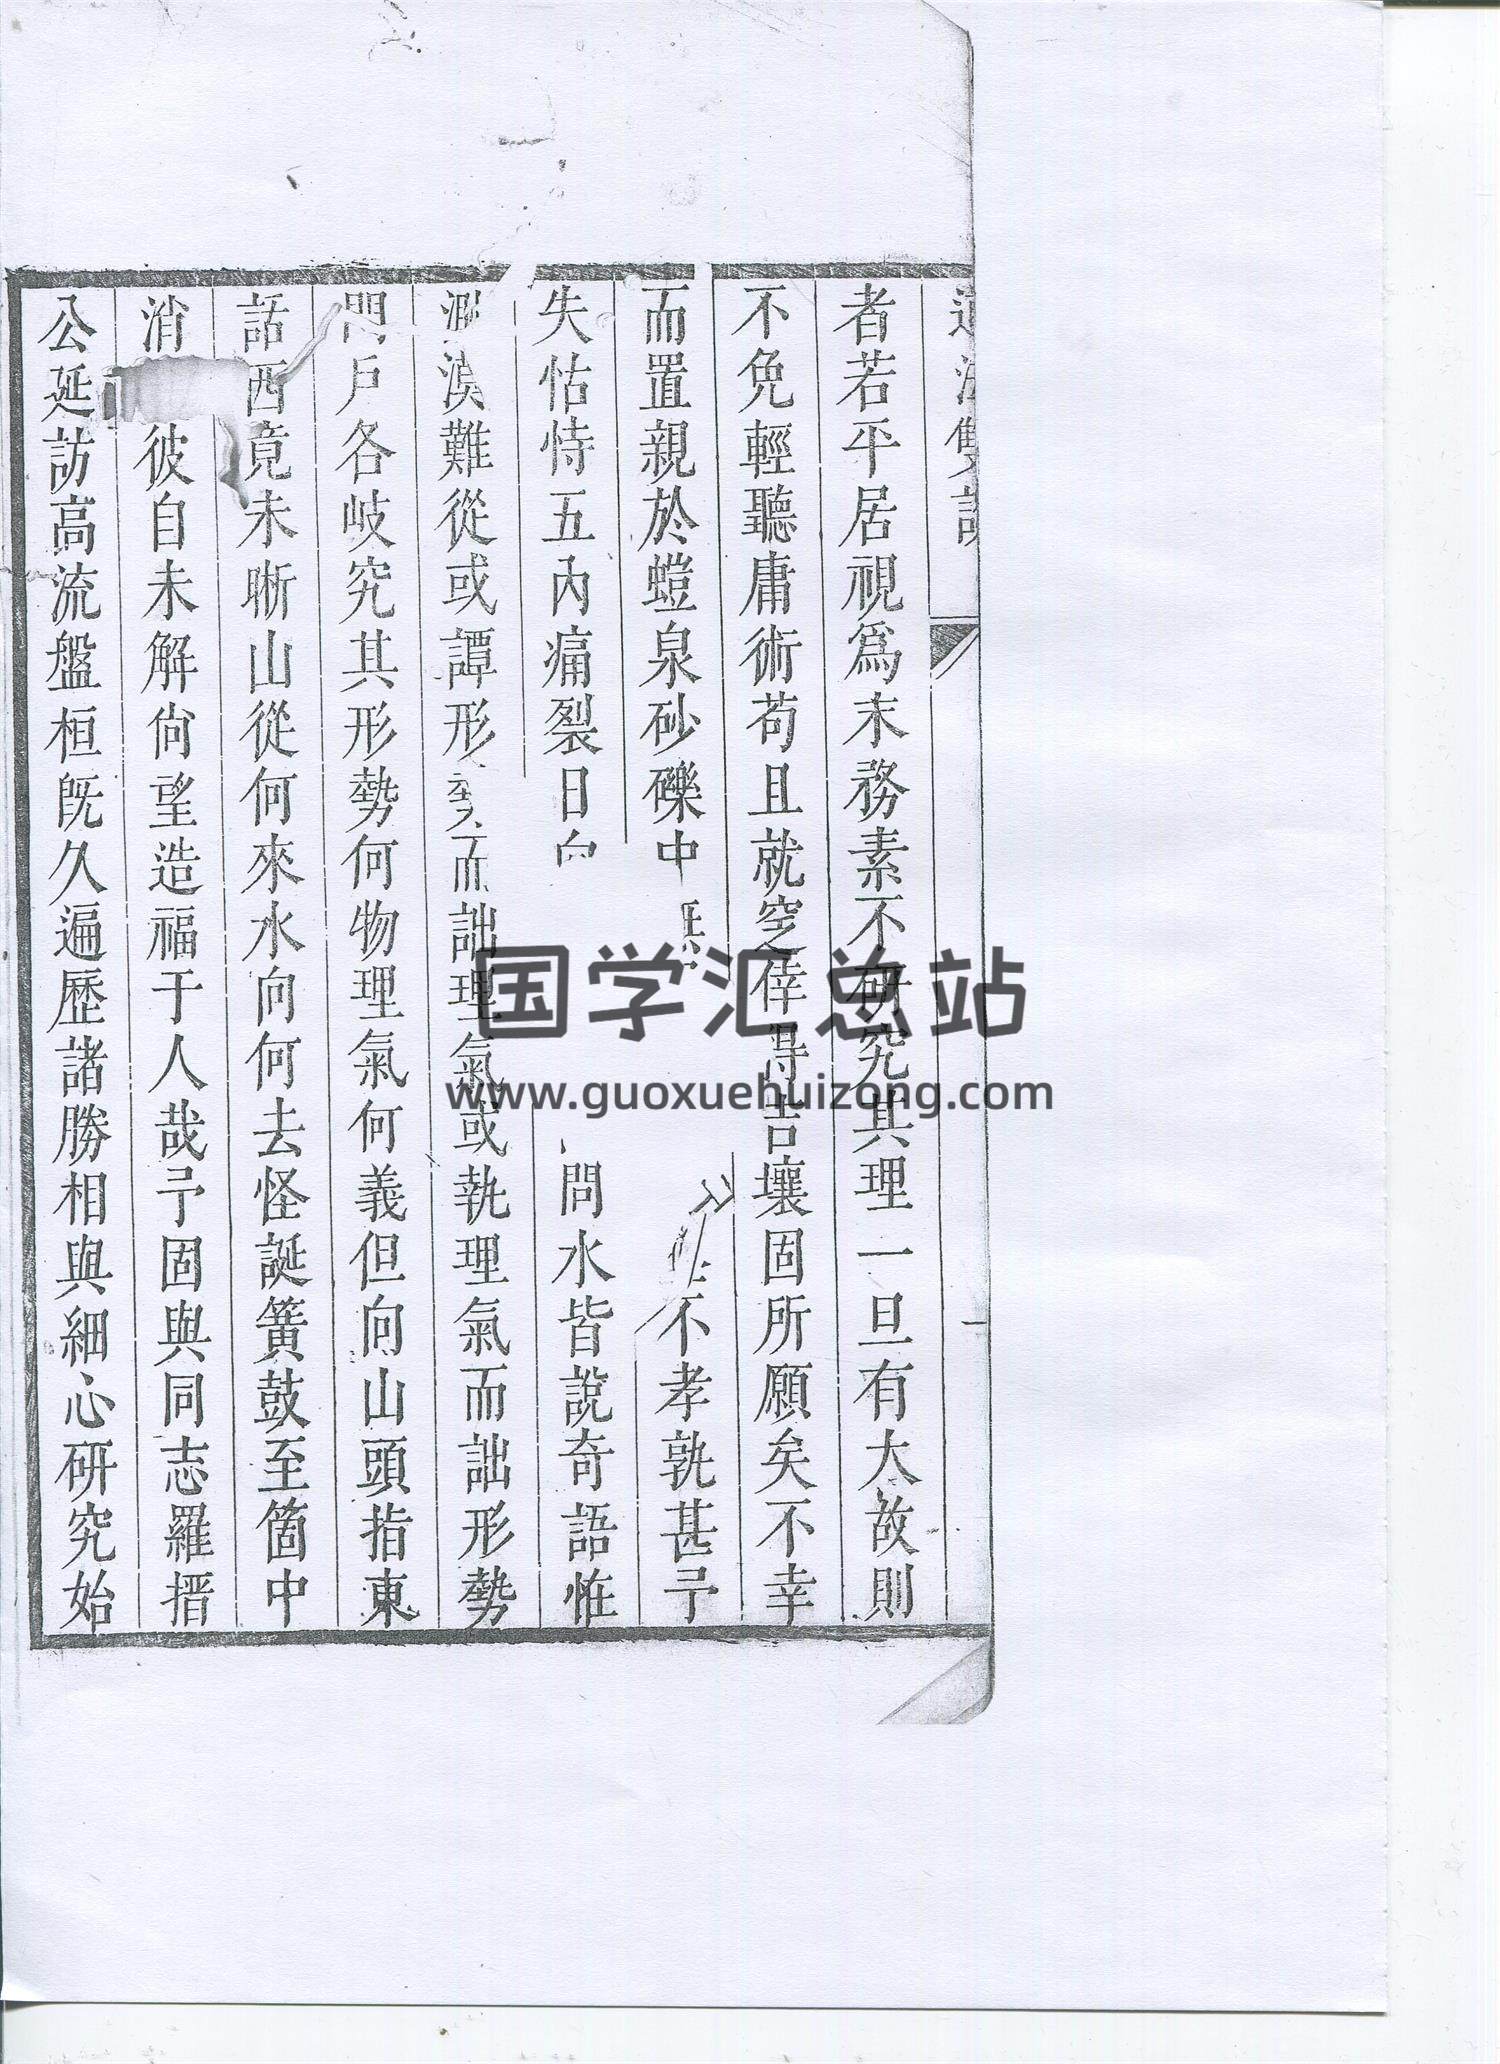 雙
一
者若平居視爲末務素不研究其理一旦有大故則
不免輕聽庸術苟且就窆倖得吉壤固所願矣不幸
而置親於螘泉砂礫中不孝孰甚予
失怙恃五內痛裂日問水皆說奇語惟
漠難從或譚形勢而詘理氣或執理氣而詘形勢
門戶各岐究其形勢何物理氣何義但向山頭指東
話西竟未晰山從何來水向何去怪誕簧鼓至箇中
消彼自未解尙望造福于人哉予固與同志羅搢
公延訪高流盤桓旣久遍歷諸勝相與細心研究始
国学汇总站
www.guoxuehuizong.com